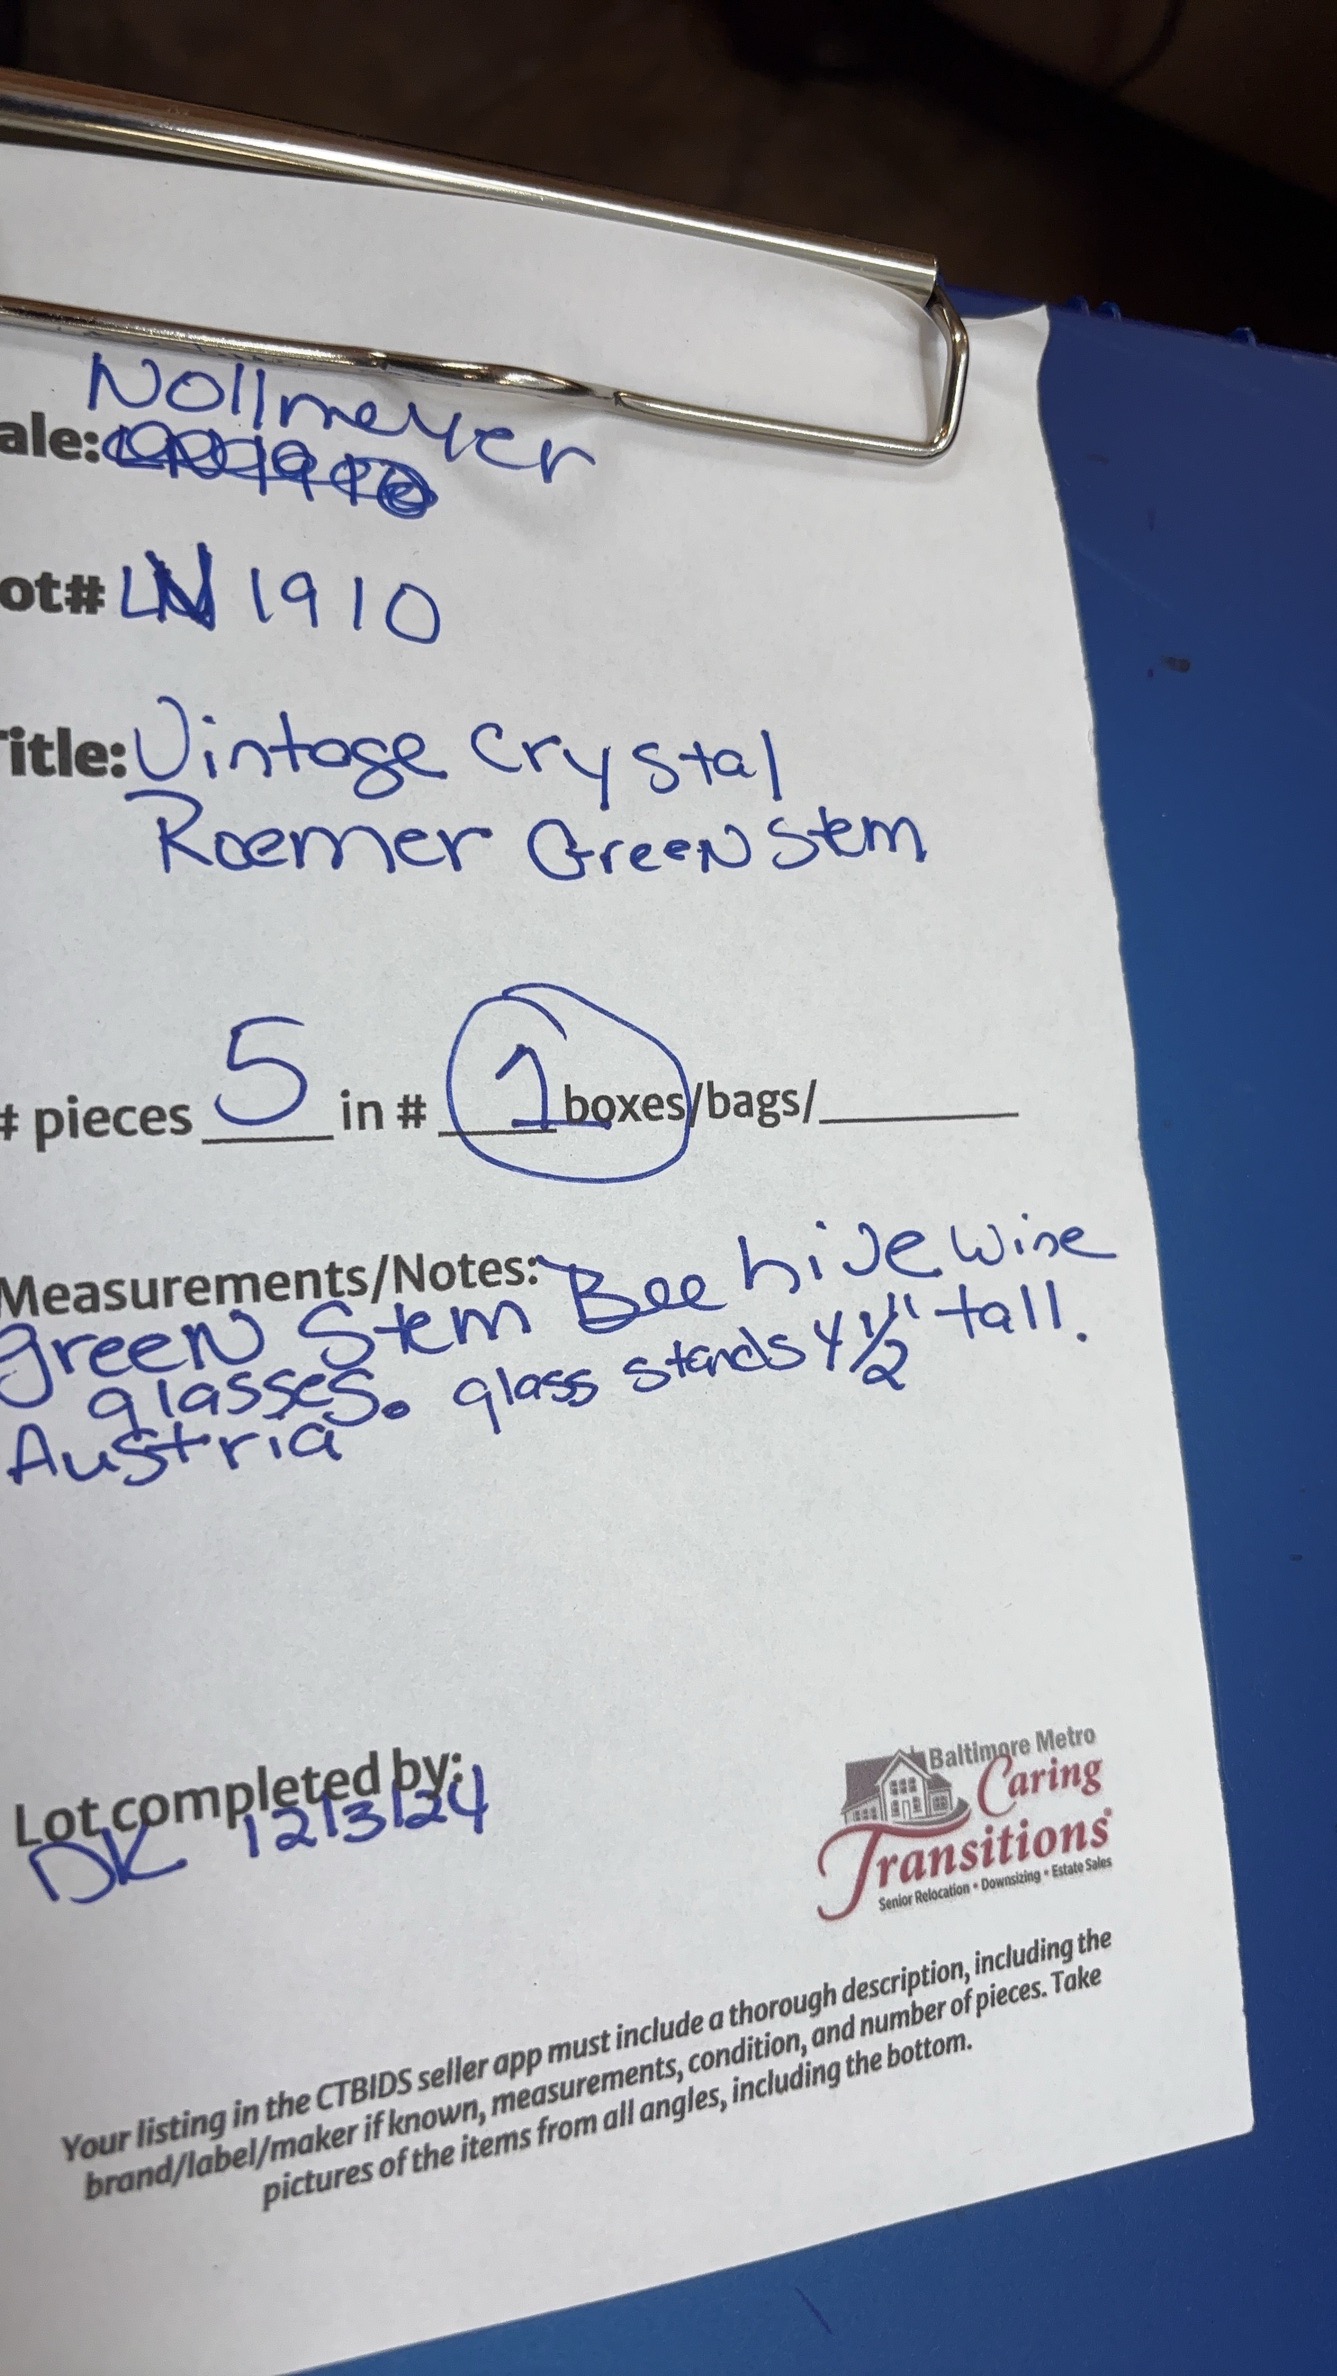 Nollmeyer
ale:
ot# LN 1910
itle: Vintage Crystal
Roemer Green Stem
# pieces 5 in # 1 boxes/bags/
Measurements/Notes:
green Stem Bee hive wine
glasses. glass stands 4 1/2" tall.
Austria
Lot completed by:
DK 12/3/24
Baltimore Metro
Caring
Transitions
Senior Relocation • Downsizing • Estate Sales
Your listing in the CTBIDS seller app must include a thorough description, including the
brand/label/maker if known, measurements, condition, and number of pieces. Take
pictures of the items from all angles, including the bottom.